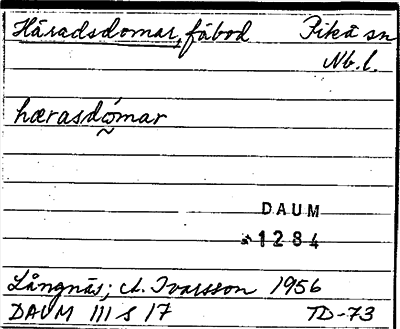 Häradsdomar, fäbod Piteå sn
Nb. l.
hærasdómar
DAUM
1284
Långnäs; A. Ivarsson 1956
DAUM III S 17 TD-73